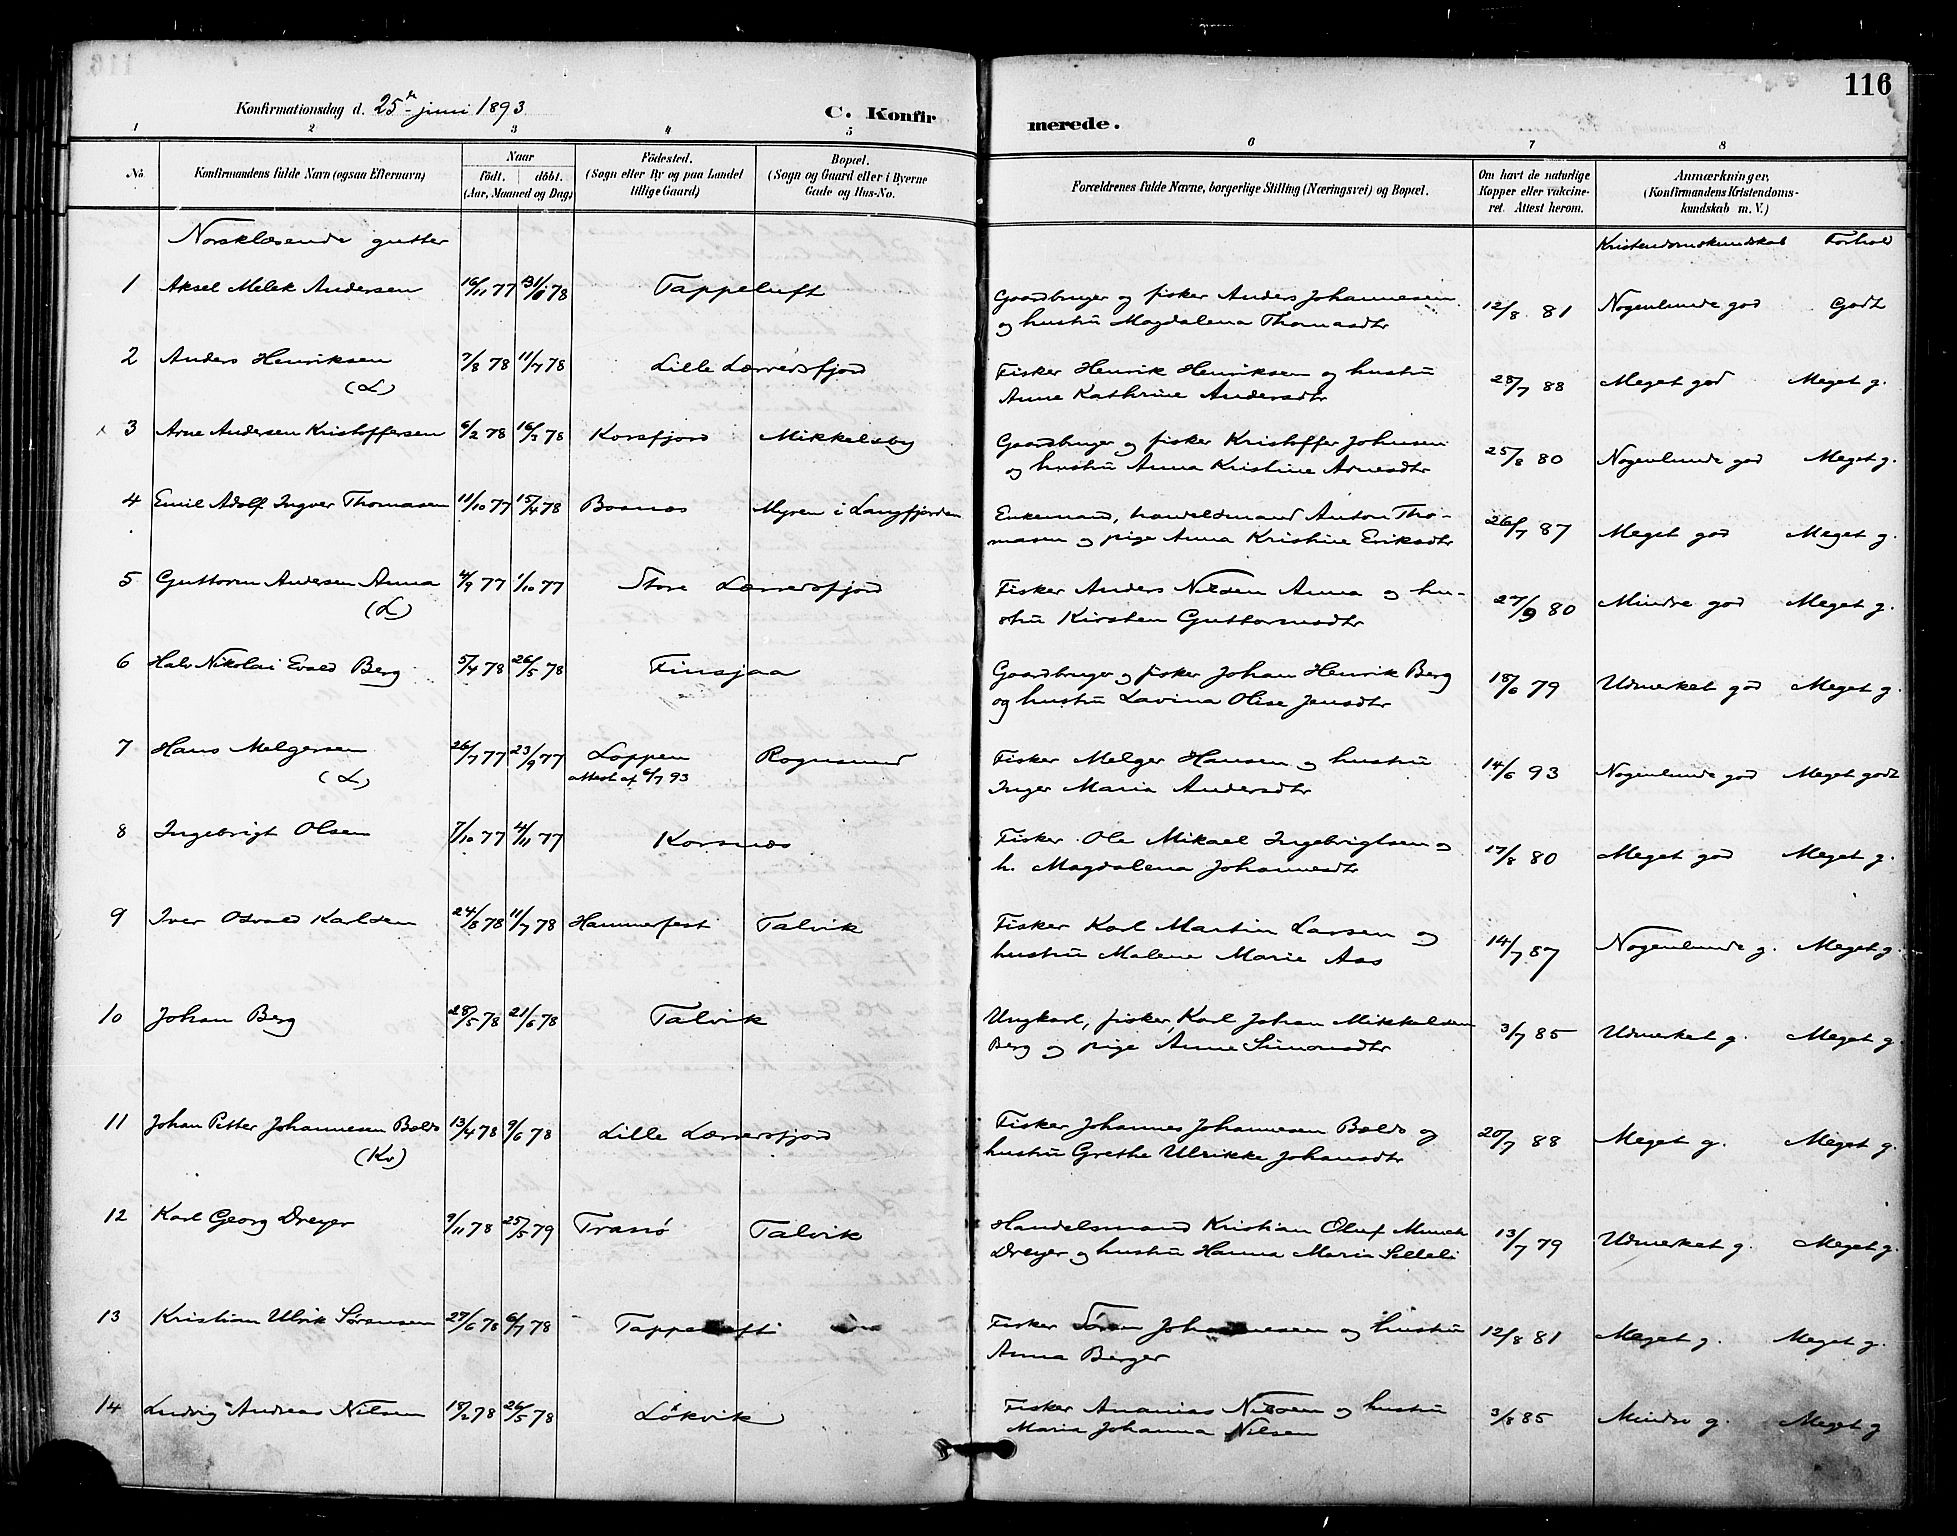 116
Konfirmationsdag d. 25de juni 1893
C. Konfirmerede.
1 2 3 4 5 6 7 8
No. Konfirmandens fulde Navn (ogsaa Efternavn) Naar födt. döbt. (Aar, Maaned og Dag) Födested. (Sogn eller By og paa Landet tillige Gaard) Bopæl. (Sogn og Gaard eller i Byerne Gade og Hus-No. Forældrenes fulde Navne, borgerlige Stilling (Næringsvei) og Bopæl. Om havt de naturlige Kopper eller vakcineret. Attest herom. Anmærkninger, (Konfirmandens Kristendomskundskab m. V.)
Norsklæsende gutter Kristendomskundskab Forhold
1 Aksel Melek Andersen 16/11 77 78 Tappeluft Gaardbruger og fisker Anders Johannesen 12/8 81 Nogenlunde god Godt
og hustru Magdalena Thomasdtr
2 Anders Henriksen 7/8 78 11/7 78 Lille Lærresfjord Fisker Henrik Henriksen og hustru 28/7 88 Meget god Meget g.
(L) Anne Kathrine Andersdtr
3 Arne Andersen Kristoffersen 6/2 78 16/3 78 Korsfjord Mikkelsby Gaardbruger og fisker Kristoffer Johnsen 25/8 80 Nogenlunde god Meget g.
og hustru Anna Kristine Arnesdtr
4 Emil Adolf Ingver Thomasen 11/10 77 15/4 78 Bosnæs Myren i Langfjorden Enkemand, handelsmand Anton Tho- 26/7 87 Meget god Meget g.
masen og pige Anna Kristine Eriksdtr
5 Guttorm Andersen Anna 4/9 77 1/10 77 Store Lærresfjord Fisker Anders Nilsen Anna og hu- 27/9 80 Mindre god Meget g.
(L) stru Kirsten Guttormsdtr
6 Halv Nikolai Evald Berg 5/4 78 26/5 78 Finsjaa Gaardbruger og fisker Johan Henrik Berg 18/6 79 Udmerket god Meget g.
og hustru Lavina Olise Jensdtr
7 Hans Melgersen 26/7 77 23/9 77 Loppen Rognsund Fisker Melger Hansen og hustru 14/6 93 Nogenlunde god Meget godt
(L) attest af 6/7 93 Inger Maria Andersdtr
8 Ingebrigt Olsen 7/10 77 4/11 77 Korsnæs Fisker Ole Mikael Ingebrigtsen og 17/8 80 Meget god Meget g.
h. Magdalena Johannesdtr
9 Iver Osvald Karlsen 24/8 78 11/7 78 Hammerfest Talvik Fisker Karl Martin Larsen og 14/7 87 Nogenlunde g. Meget g.
hustru Malene Marie Aas
10 Johan Berg 28/5 78 21/6 78 Talvik Ungkarl, fisker, Karl Johan Mikkelsen 3/7 85 Udmerket g. Meget g
Berg og pige Anne Simonsdtr
11 Johan Petter Johannesen Balds 13/4 78 9/6 78 Lille Lærresfjord Fisker Johannes Johannesen Balds og 20/7 88 Meget g. Meget g.
(Kv) hustru Grethe Ulrikke Johansdtr
12 Karl Georg Dreyer 9/11 78 25/5 79 Tranö Talvik Handelsmand Kristian Oluf Munch 13/7 79 Udmerket g. Meget g.
Dreyer og hustru Hanna Maria
13 Kristian Ulrik Sörensen 27/6 78 6/7 78 Tappeluft Fisker Sören Johannesen og hustru 12/8 81 Meget g. Meget g.
Anna Berger
14 Ludvig Andreas Nilsen 18/2 78 26/5 78 Lökvik Fisker Ananias Nilsen og hustru 3/8 85 Mindre g. Meget g
Maria Johanna Nilsen